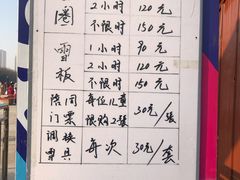 圈 2小时 120元
不限时 150元
雪板 1小时 90元
2小时 120元
不限时 150元
陪同门票 每位儿童限购2张 30元/张
调换雪具 每次 30元/套